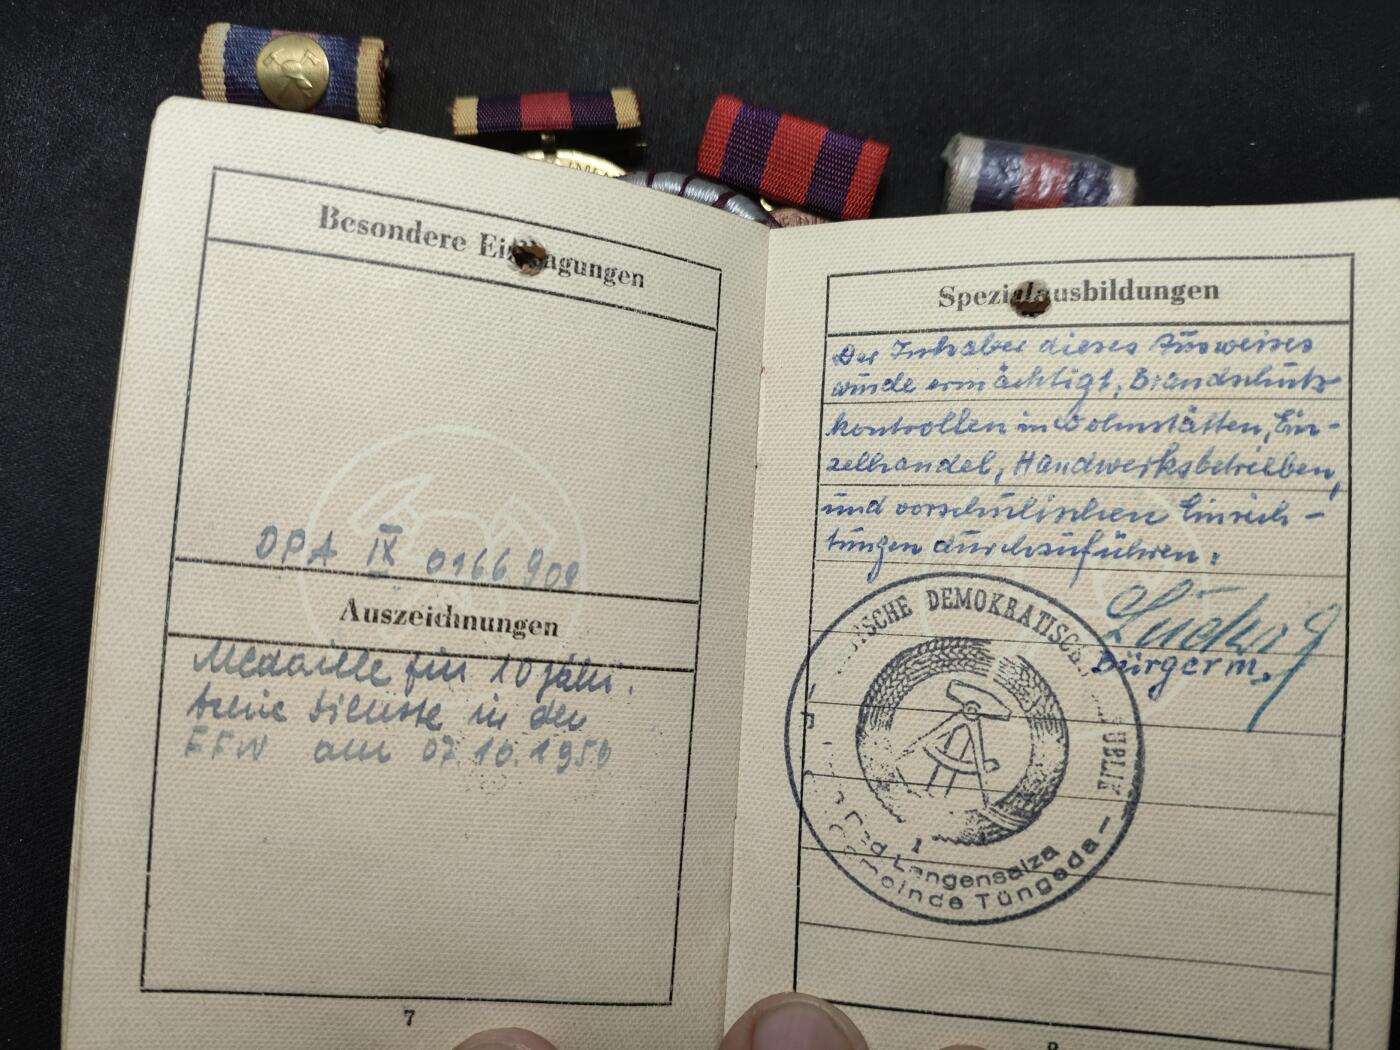 Besondere Eintragungen
DPA IX 0166902
Auszeichnungen
Medaille für 10 jähr.
treue Dienste in der
FFW am 07.10.1959
7
Spezialausbildungen
Der Inhaber dieses Ausweises
wurde ermächtigt, Brandschutz
kontrollen in Wohnstätten, Ein-
zelhandel, Handwerksbetrieben,
und vorschulischen Einrich-
tungen durchzuführen.
Bürgerm.
DEUTSCHE DEMOKRATISCHE REPUBLIK
1
Bad Langensalza
Gemeinde Tüngeda
8